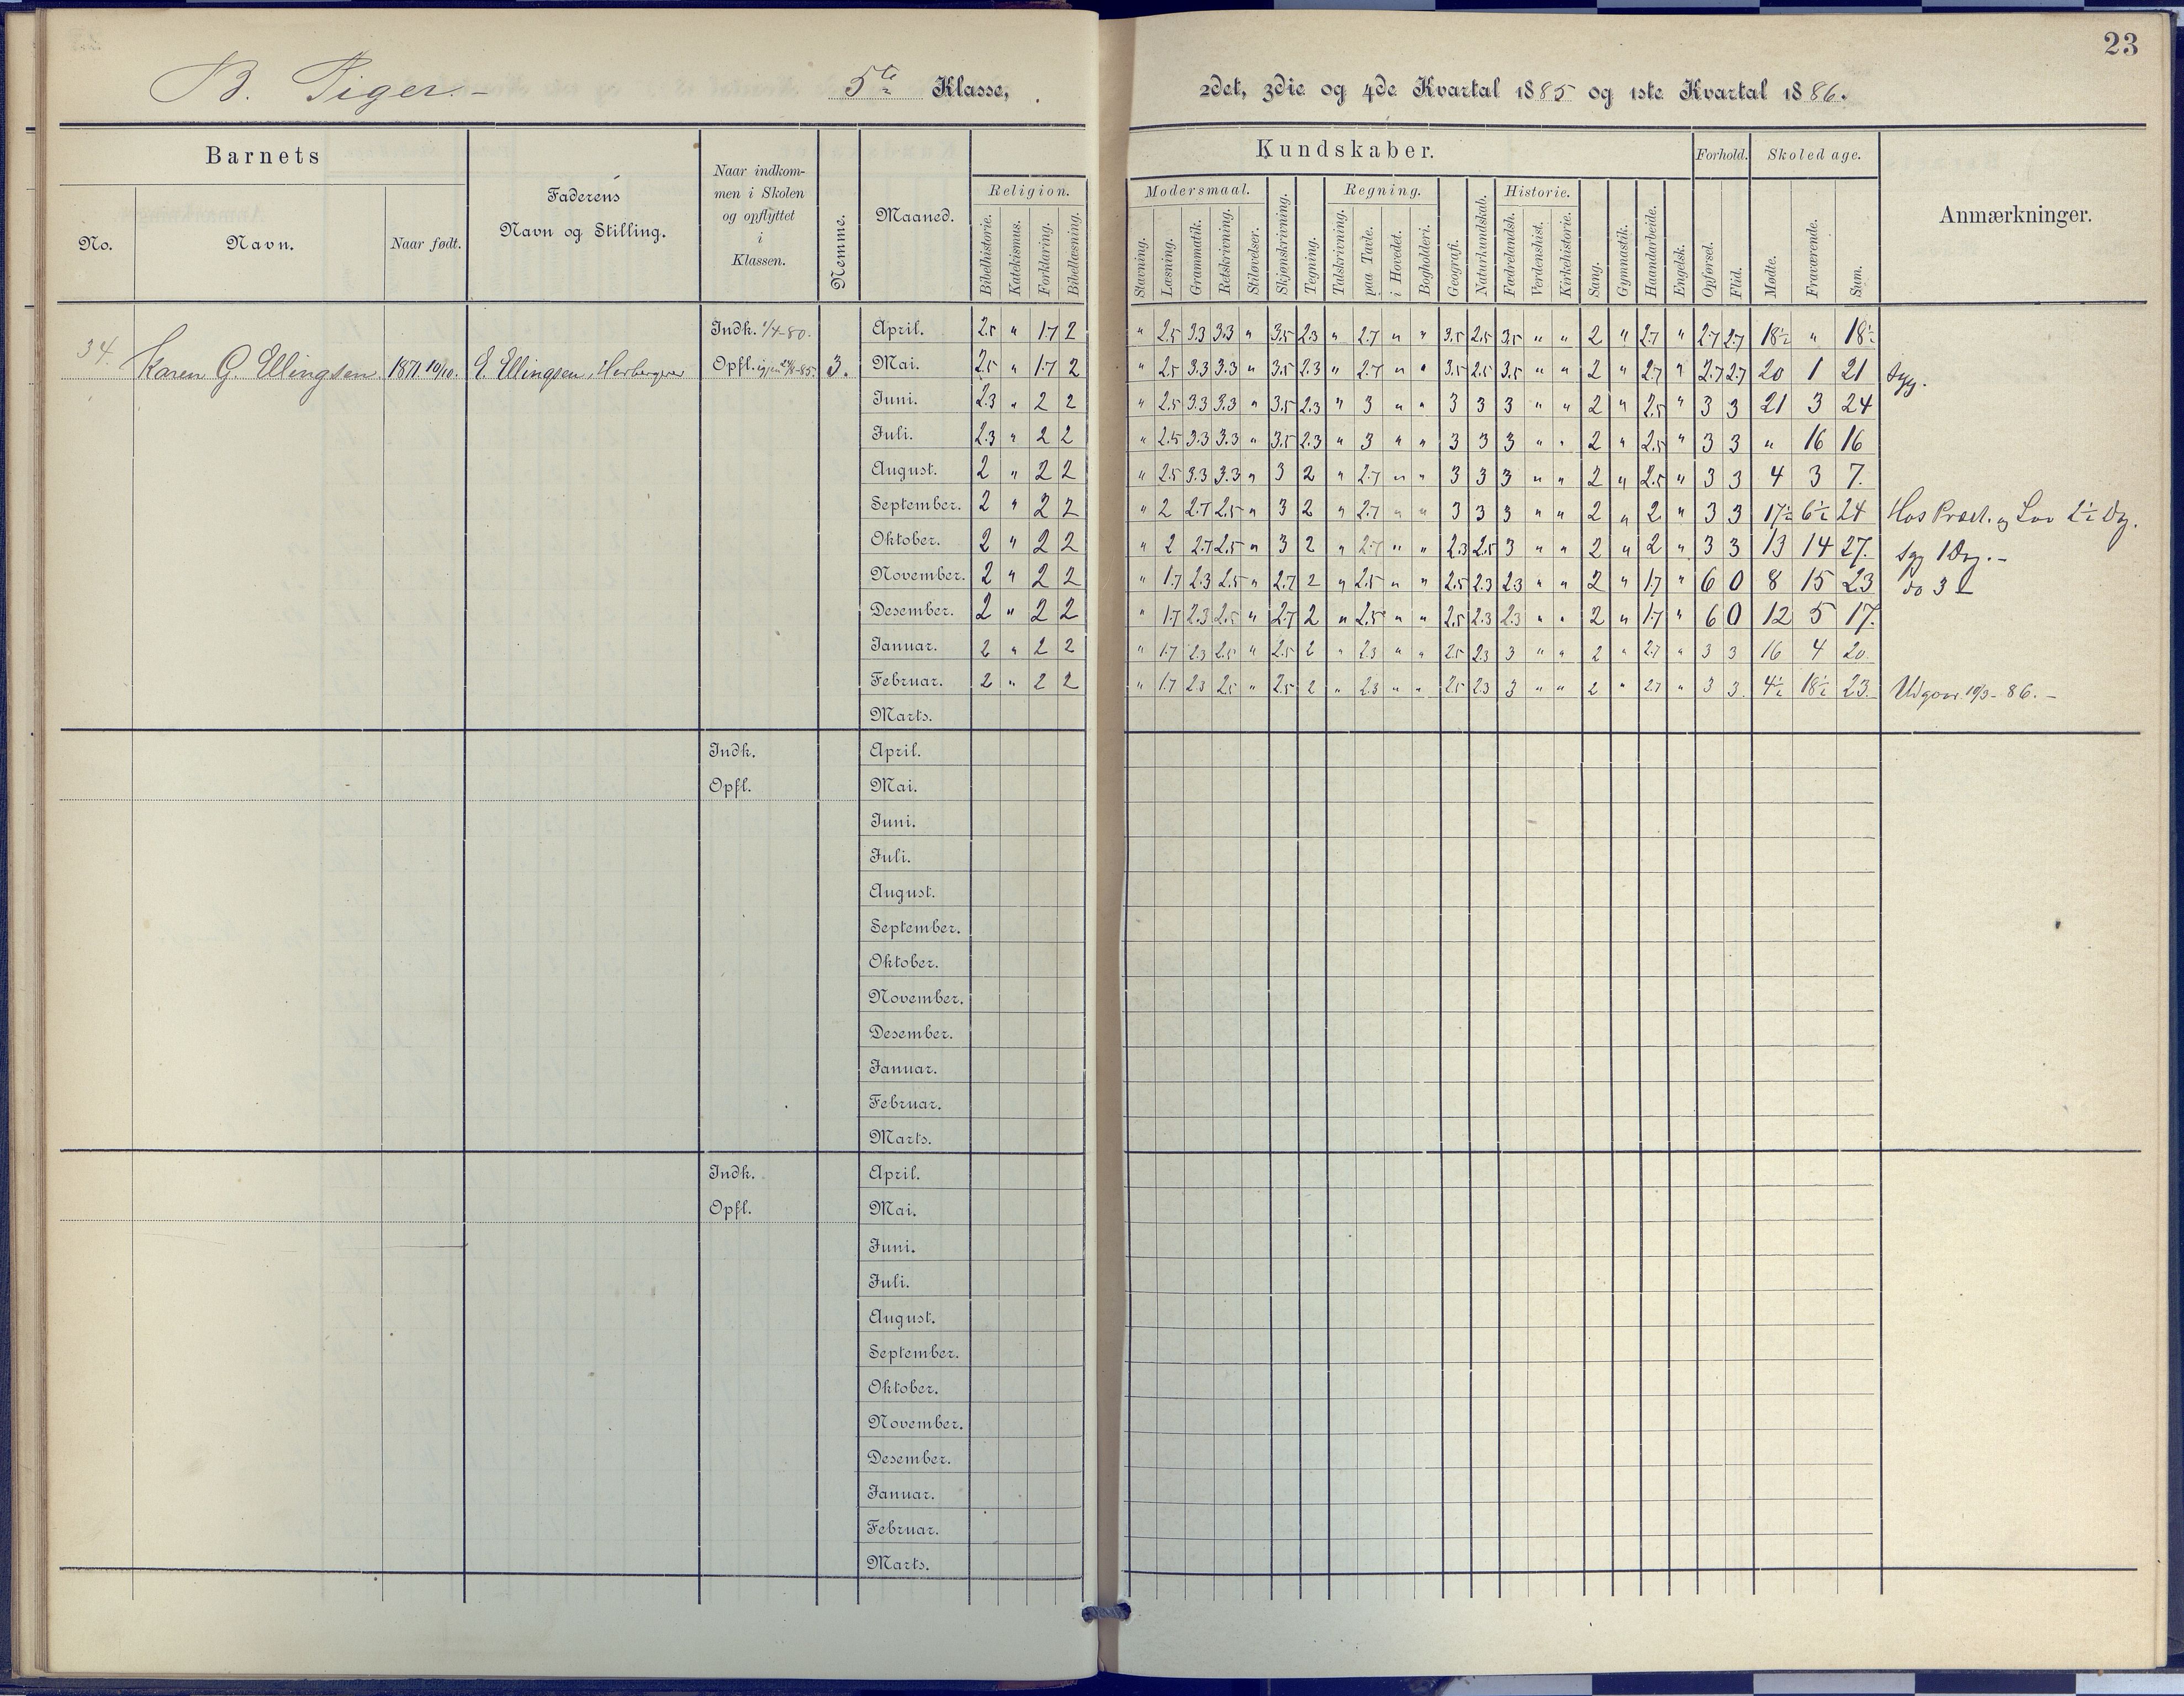 23
B. Piger.-
5te Klasse,
2det, 3die og 4de Kvartal 1885 og 1ste Kvartal 1886.
Barnets
No.
Navn.
Naar født.
Faderens
Navn og Stilling.
Naar indkom-
men i Skolen
og opflyttet
i
Klassen.
Nemme.
Maaned.
Kundskaber.
Religion.
Bibelhistorie.
Katekismus.
Forklaring.
Bibellæsning.
Modersmaal.
Stavning.
Læsning.
Grammatik.
Retskrivning.
Stiløvelser.
Skjønskrivning.
Tegning.
Regning.
Talskrivning.
paa Tavle.
i Hovedet.
Bogholderi.
Geografi.
Naturkundskab.
Historie.
Fædrelandsh.
Verdenshist.
Kirkehistorie.
Sang.
Gymnastik.
Haandarbeide.
Engelsk.
Forhold.
Opførsel.
Flid.
Skoledage.
Mødte.
Fraværende.
Sum.
Anmærkninger.
34. Karen G. Ellingsen. 1871 10/10. E. Ellingsen, Herbergerer
Indk. 1/4-80.
Opfl. igjen 24/4-85. 3.
April. 2.5 " 1.7 2 " 2.5 3.3 3.3 " 3.5 2.3 " 2.7 " " 3.5 2.5 3.5 " " 2 " 2.7 " 2.7 2.7 18½ " 18½
Mai. 2.5 " 1.7 2 " 2.5 3.3 3.3 " 3.5 2.3 " 2.7 " " 3.5 2.5 3.5 " " 2 " 2.7 " 2.7 2.7 20 1 21 Syg.
Juni. 2.3 " 2 2 " 2.5 3.3 3.3 " 3.5 2.3 " 3 " " 3 3 3 " " 2 " 2.5 " 3 3 21 3 24
Juli. 2.3 " 2 2 " 2.5 3.3 3.3 " 3.5 2.3 " 3 " " 3 3 3 " " 2 " 2.5 " 3 3 " 16 16
August. 2 " 2 2 " 2.5 3.3 3.3 " 3 2 " 2.7 " " 3 3 3 " " 2 " 2.5 " 3 3 4 3 7.
September. 2 " 2 2 " 2 2.7 2.5 " 3 2 " 2.7 " " 3 3 3 " " 2 " 2 " 3 3 17½ 6½ 24 Hos Præst. og Lov 2½ Dg.
Oktober. 2 " 2 2 " 2 2.7 2.5 " 3 2 " 2.7 " " 2.3 2.5 3 " " 2 " 2 " 3 3 13 14 27. Syg 1 Dg. -
November. 2 " 2 2 " 1.7 2.3 2.5 " 2.7 2 " 2.5 " " 2.5 2.3 2.3 " " 2 " 1.7 " 6 0 8 15 23 do 3
Desember. 2 " 2 2 " 1.7 2.3 2.5 " 2.7 2 " 2.5 " " 2.5 2.3 2.3 " " 2 " 1.7 " 6 0 12 5 17.
Januar. 2 " 2 2 " 1.7 2.3 2.5 " 2.5 2 " 2.3 " " 2.5 2.3 3 " " 2 " 2.7 " 3 3 16 4 20.
Februar. 2 " 2 2 " 1.7 2.3 2.5 " 2.5 2 " 2.3 " " 2.5 2.3 3 " " 2 " 2.7 " 3 3. 4½ 18½ 23. Udgaar 10/3-86. -
Marts.
Indk. April.
Opfl. Mai.
Juni.
Juli.
August.
September.
Oktober.
November.
Desember.
Januar.
Februar.
Marts.
Indk. April.
Opfl. Mai.
Juni.
Juli.
August.
September.
Oktober.
November.
Desember.
Januar.
Februar.
Marts.